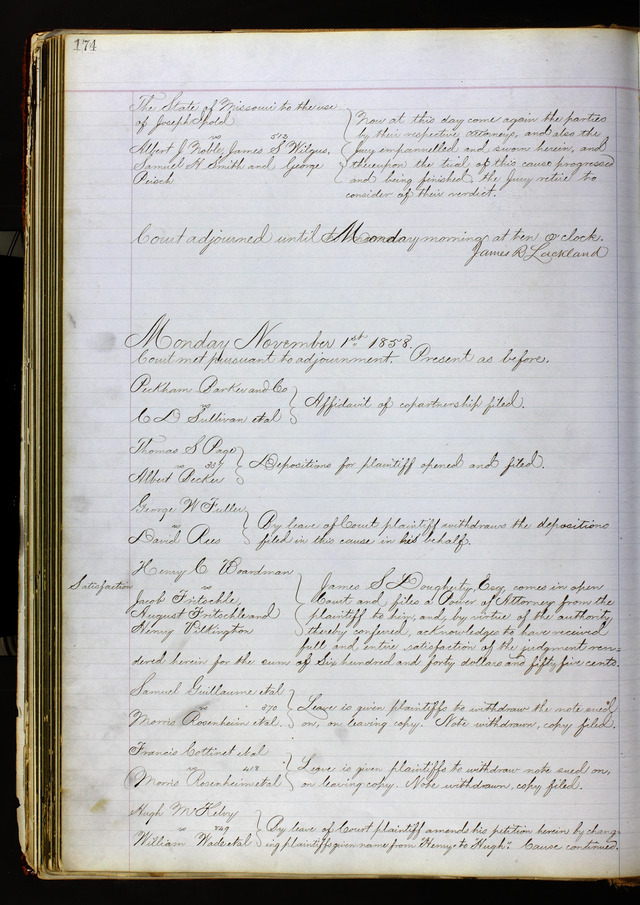 174
The State of Missouri to the use
of Joseph Spold
vs 513
Albert J Noble, James S Wilgus,
Samuel H Smith and George
Peisch
Now at this day come again the parties
by their respective attorneys, and also the
Jury empannelled and sworn herein, and
thereupon the trial of this cause progressed
and being finished, the Jury retire to
consider of their verdict.
Court adjourned until Monday morning at ten o'clock.
James R Lackland
Monday November 1st 1858.
Court met pursuant to adjournment. Present as before.
Peckham Parker and Co
vs
C D Sullivan et al
Affidavit of copartnership filed.
Thomas S Page
vs 337
Albert Becker
Depositions for plaintiff opened and filed.
George W Fuller
vs
David Rees
By leave of Court plaintiff withdraws the depositions
filed in this cause in his behalf.
Satisfaction
Henry C Boardman
vs
Jacob Fritschle,
August Fritschle and
Henry Wilkington
James S Dougherty, Esq comes in open
Court and files a Power of Attorney from the
plaintiff to him, and, by virtue of the authority
thereby confered, acknowledges to have received
full and entire satisfaction of the judgment ren-
dered herein for the sum of Six hundred and forty dollars and fifty five cents.
Samuel Guillaume et al
vs 370
Morris Rosenheim et al.
Leave is given plaintiffs to withdraw the note sued
on, on leaving copy. Note withdrawn, copy filed.
Francis Cottinet et al
vs 413
Morris Rosenheim et al
Leave is given plaintiffs to withdraw note sued on,
on leaving copy. Note withdrawn, copy filed.
Hugh McKelvy
vs 749
William Wade et al
By leave of Court plaintiff amends his petition herein by chang-
ing plaintiffs given name from "Henry" to Hugh". Cause continued.